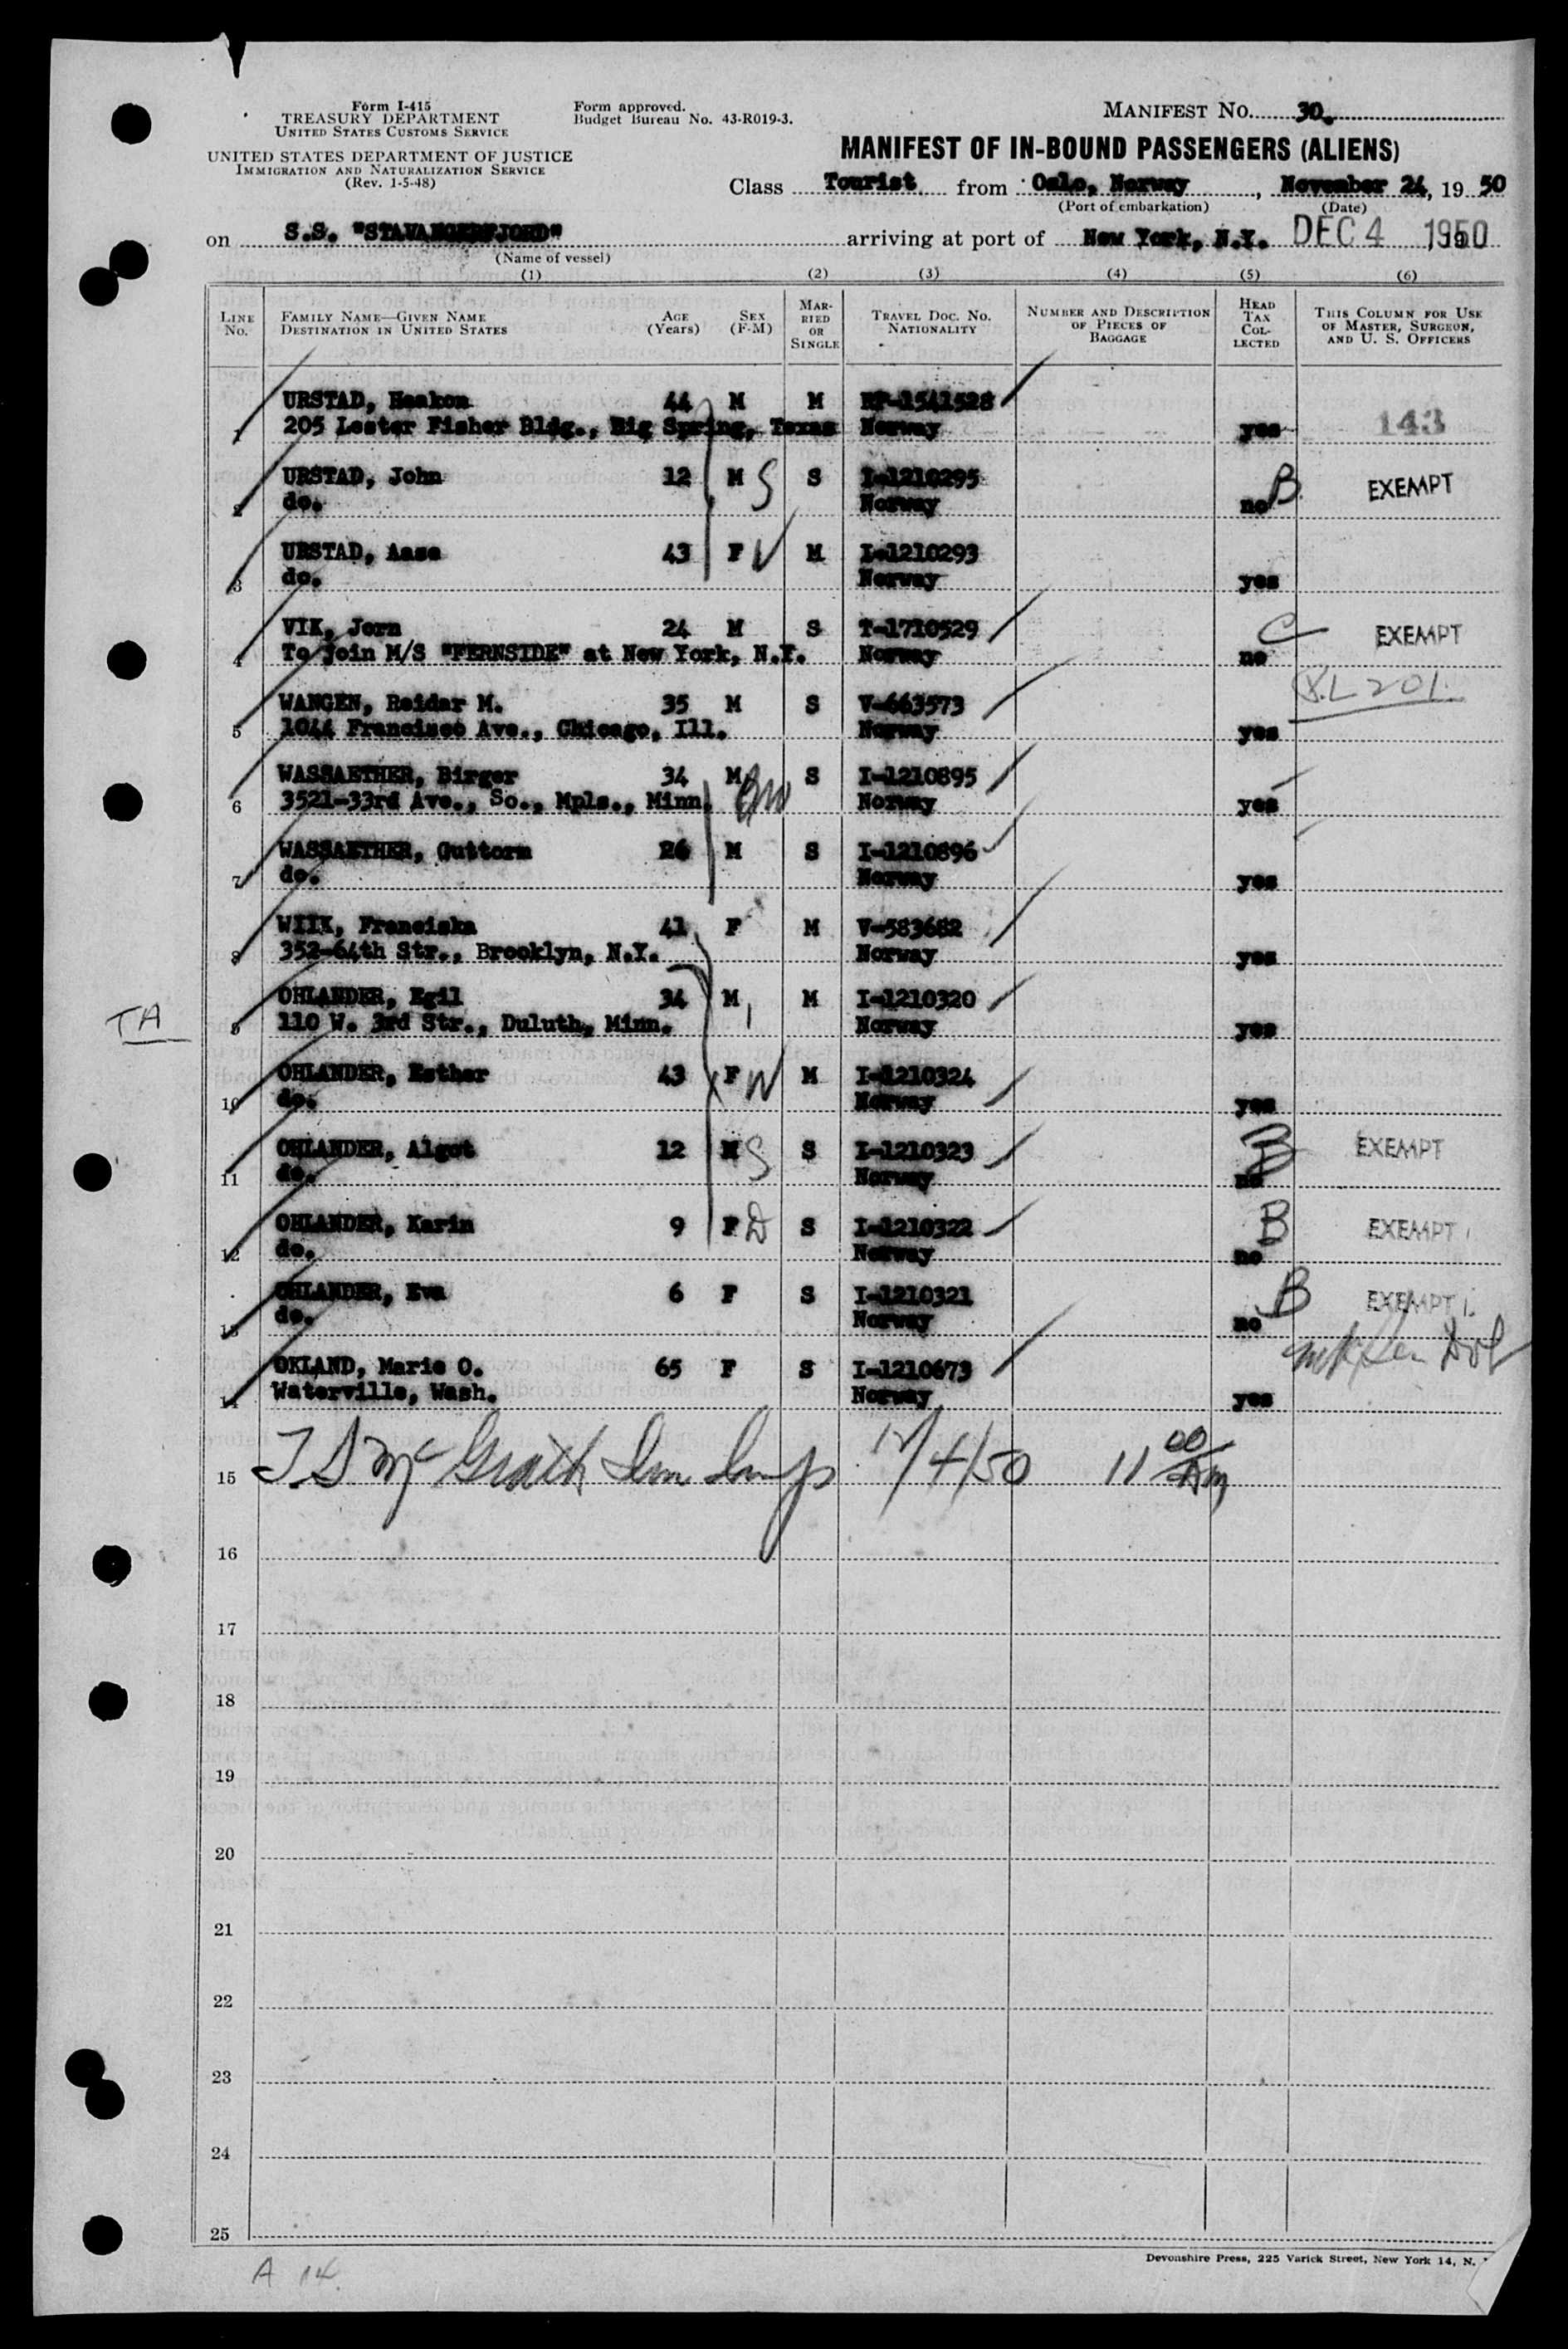 Form I-415
TREASURY DEPARTMENT
UNITED STATES CUSTOMS SERVICE
UNITED STATES DEPARTMENT OF JUSTICE
IMMIGRATION AND NATURALIZATION SERVICE
(Rev. 1-5-48)
Form approved.
Budget Bureau No. 43-R019-3.
MANIFEST NO. 30.
MANIFEST OF IN-BOUND PASSENGERS (ALIENS)
Class Tourist from Oslo, Norway, November 24, 19 50
(Port of embarkation) (Date)
on S.S. "STAVANGERFJORD" arriving at port of New York, N.Y. DEC 4 1950
(Name of vessel)
(1) (2) (3) (4) (5) (6)
LINE No. FAMILY NAME—GIVEN NAME DESTINATION IN UNITED STATES AGE (Years) SEX (F-M) MARRIED OR SINGLE TRAVEL DOC. NO. NATIONALITY NUMBER AND DESCRIPTION OF PIECES OF BAGGAGE HEAD TAX COLLECTED THIS COLUMN FOR USE OF MASTER, SURGEON, AND U. S. OFFICERS
URSTAD, Haakon 44 M M RP-1541528
1 205 Lester Fisher Bldg., Big Spring, Texas Norway yes 143
URSTAD, John 12 M S S I-1210295
2 do. Norway no B EXEMPT
URSTAD, Aase 43 F W M I-1210293
3 do. Norway yes
VIK, Jorn 24 M S T-1710529
4 To join M/S "FERNSIDE" at New York, N.Y. Norway no C EXEMPT
WANGEN, Reidar M. 35 M S V-663573
5 1044 Francisco Ave., Chicago, Ill. Norway yes
WASSAETHER, Birger 34 M S I-1210895
6 3521-33rd Ave., So., Mpls., Minn. Norway yes
WASSAETHER, Guttorm 26 M S I-1210896
7 do. Norway yes
WIIK, Franciska 41 F M V-583682
8 352-64th Str., Brooklyn, N.Y. Norway yes
TA
OHLANDER, Egil 34 M M I-1210320
9 110 W. 3rd Str., Duluth, Minn. Norway yes
OHLANDER, Esther 43 F W M I-1210324
10 do. Norway yes
OHLANDER, Algot 12 M S S I-1210323
11 do. Norway no B EXEMPT
OHLANDER, Karin 9 F D S I-1210322
12 do. Norway no B EXEMPT
OHLANDER, Eva 6 F S I-1210321
13 do. Norway no B EXEMPT
OKLAND, Marie O. 65 F S I-1210673
14 Waterville, Wash. Norway yes
15 T S McGrath Imm Insp 12/4/50 11 00 AM
16
17
18
19
20
21
22
23
24
25
A 14
Devonshire Press, 225 Varick Street, New York 14, N.